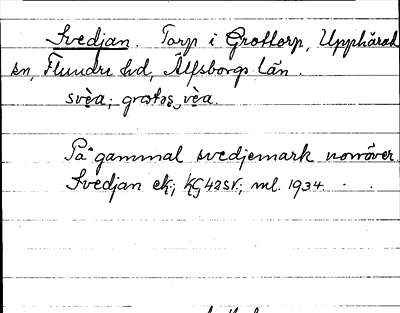 Svedjan. Torp i Grottorp, Upphärad
sn, Flundre hd, Älfsborgs län.
svèa; grotəs vèa.
På gammal svedjemark norröver
Svedjan ek; KG 42SV; ml. 1934.